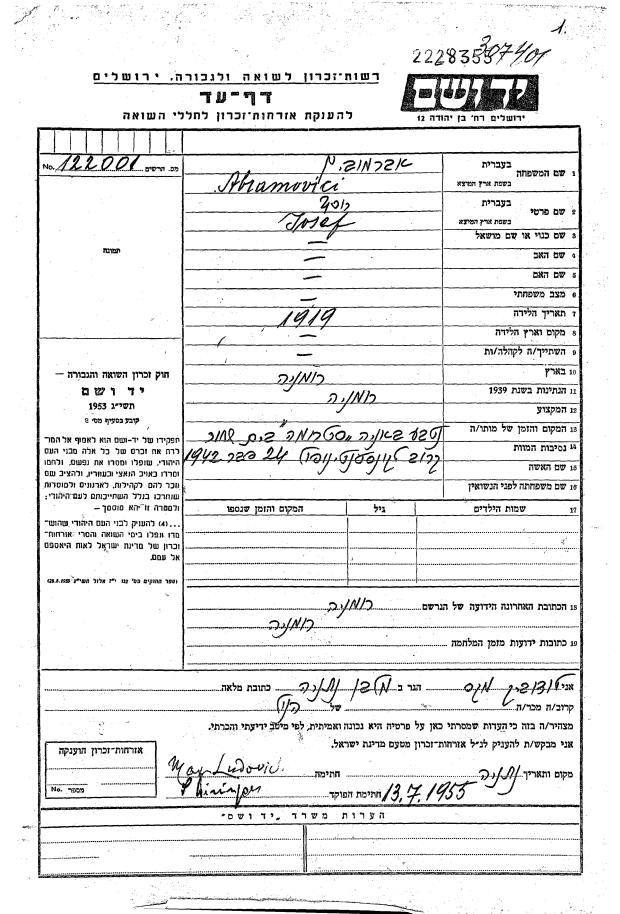 1.
307401
2228355
רשות-זכרון לשואה ולגבורה, ירושלים
יד ושם
דף-עד
ירושלים רח' בן יהודה 12
להענקת אזרחות-זכרון לחללי השואה
No. 122001 מס. הרשים
תמונה
1 שם המשפחה
בעברית
אברמוביץ
בשפת ארץ המוצא
Abramovici
2 שם פרטי
בעברית
יוסף
בשפת ארץ המוצא
Josef
3 שם כנוי או שם מושאל —
4 שם האב —
5 שם האם —
6 מצב משפחתי —
7 תאריך הלידה 1919
8 מקום וארץ הלידה —
9 השתייך/ה לקהלה/ות —
10 בארץ רומניה
11 הנתינות בשנת 1939 רומניה
12 המקצוע
13 המקום והזמן של מותו/ה נטבע באניה "סטרומה" בים שחור
14 נסיבות המוות קרוב לקונסטנטינופול 24 פבר 1942
15 שם האשה
16 שם משפחתה לפני הנשואין
חוק זכרון השואה והגבורה —
יד ושם
תשי"ג 1953
קובע בסעיף מס' 2
תפקידו של יד-ושם הוא לאסוף אל המו־
לדת את זכרם של כל אלה מבני העם
היהודי, שנפלו ומסרו את נפשם, נלחמו
ומרדו באויב הנאצי ובעוזריו, ולהציב שם
וזכר להם, לקהילות, לארגונים ולמוסדות
שנחרבו בגלל השתייכותם לעם היהודי;
ולמטרה זו יהא מוסמך —
...(4) להעניק לבני העם היהודי שהוש־
מדו ונפלו בימי השואה והמרי אזרחות־
זכרון של מדינת ישראל לאות היאספם
אל עמם.
17 שמות הילדים גיל המקום והזמן שנספו
18 הכתובת האחרונה הידועה של הנרשם רומניה
19 כתובות ידועות מזמן המלחמה רומניה
אני לודוביק מקס הגר ב נתניה כתובת מלאה
קרוב/ה מכר/ה של הנ"ל
מצהיר/ה בזה כי העדות שמסרתי כאן על פרטיה היא נכונה ואמיתית, לפי מיטב ידיעתי והכרתי.
אני מבקש/ת להעניק לנ"ל אזרחות-זכרון מטעם מדינת ישראל.
מקום ותאריך נתניה חתימה Max Ludovic
13.7.1955 חתימת הפוקד
אזרחות-זכרון הוענקה
No. מספר
הערות משרד "יד ושם"